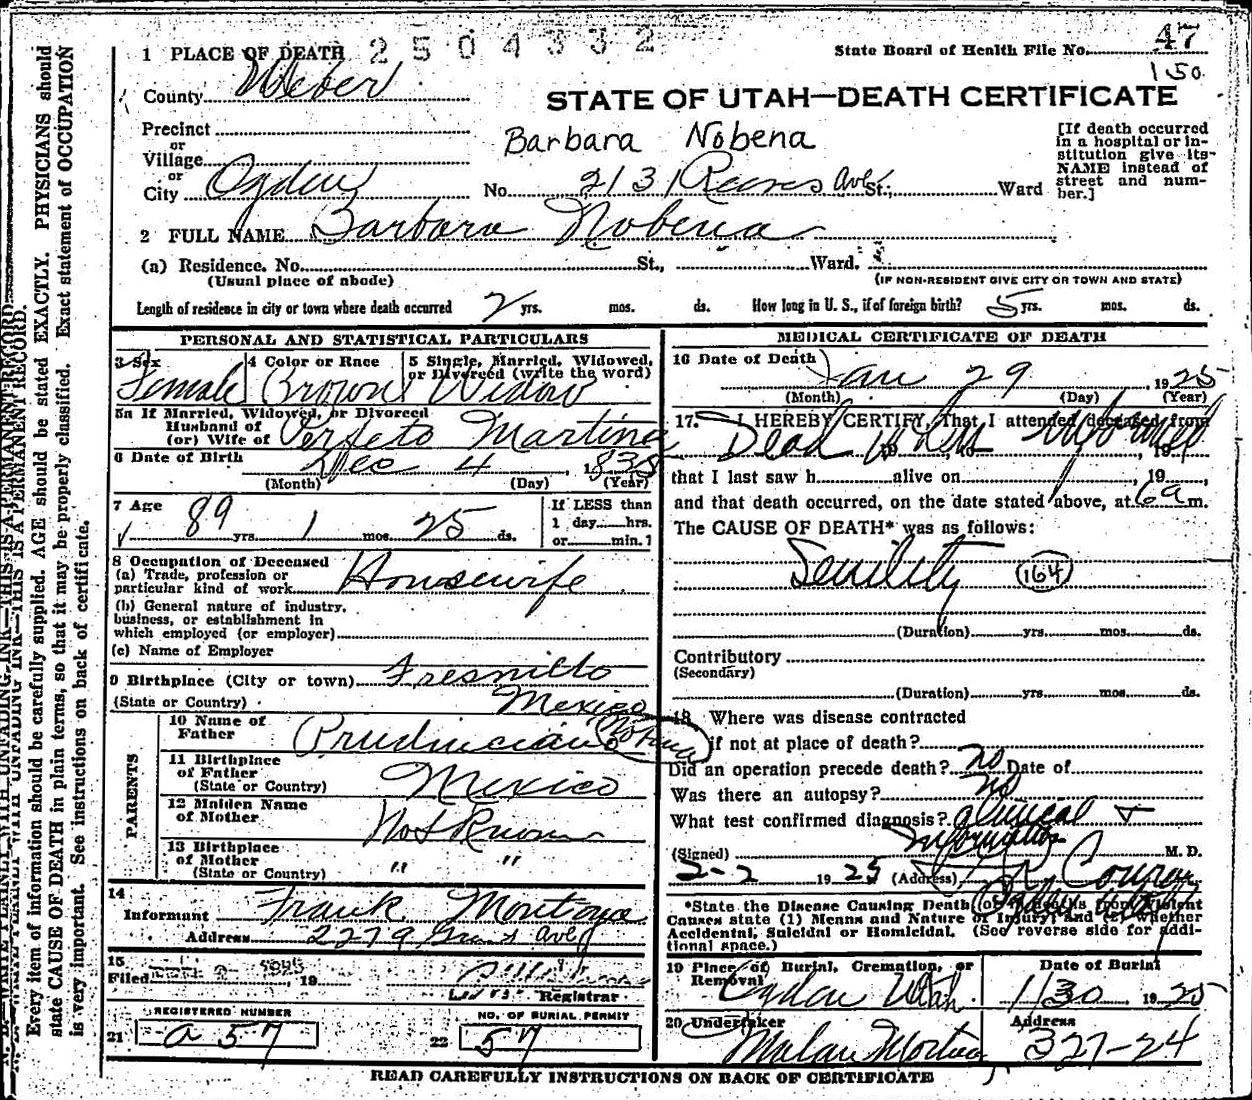 2504332
1 PLACE OF DEATH
State Board of Health File No. 47
150
County Weber
STATE OF UTAH—DEATH CERTIFICATE
Precinct
or
Village
or
City Ogden
Barbara Nobena
No. 2131 Reeves Ave St; Ward
[If death occurred in a hospital or in-
stitution give its
NAME instead of
street and num-
ber.]
2 FULL NAME Barbara Nobena
(a) Residence. No. St., Ward.
(Usual place of abode)
(IF NON-RESIDENT GIVE CITY OR TOWN AND STATE)
Length of residence in city or town where death occurred 2 yrs. mos. ds. How long in U. S., if of foreign birth? 5 yrs. mos. ds.
PERSONAL AND STATISTICAL PARTICULARS
3 Sex Female
4 Color or Race Brown
5 Single, Married, Widowed,
or Divorced (write the word) Widow
5a If Married, Widowed, or Divorced
Husband of
(or) Wife of Perfeto Martina
6 Date of Birth Dec 4, 1835
(Month) (Day) (Year)
7 Age 89 yrs. 1 mos. 25 ds.
If LESS than
1 day hrs.
or min. ?
8 Occupation of Deceased
(a) Trade, profession or
particular kind of work Housewife
(b) General nature of industry,
business, or establishment in
which employed (or employer)
(c) Name of Employer
9 Birthplace (City or town) Fresnillo
(State or Country) Mexico
PARENTS
10 Name of
Father Prudinciano Nobena
11 Birthplace
of Father
(State or Country) Mexico
12 Maiden Name
of Mother Not Known
13 Birthplace
of Mother
(State or Country) " "
14
Informant Frank Montoya
Address 2279 Ave
15
Filed 19
Registrar
REGISTERED NUMBER
21 a 57
NO. OF BURIAL PERMIT
22 57
MEDICAL CERTIFICATE OF DEATH
16 Date of Death Jan 29, 1925
(Month) (Day) (Year)
17. I HEREBY CERTIFY, That I attended deceased from
Dead when 19
that I last saw h alive on , 19 ,
and that death occurred, on the date stated above, at 6 a m.
The CAUSE OF DEATH* was as follows:
Senility (164)
(Duration) yrs. mos. ds.
Contributory
(Secondary)
(Duration) yrs. mos. ds.
18 Where was disease contracted
if not at place of death?
Did an operation precede death? no Date of
Was there an autopsy? no
What test confirmed diagnosis? clinical +
information
(Signed) M. D.
2-2 1925 (Address)
*State the Disease Causing Death, or in deaths from Violent
Causes state (1) Means and Nature of Injury; and (2) whether
Accidental, Suicidal or Homicidal. (See reverse side for addi-
tional space.)
19 Place of Burial, Cremation, or
Removal Ogden Utah
Date of Burial
1/30 1925
20 Undertaker
Address
327-24
READ CAREFULLY INSTRUCTIONS ON BACK OF CERTIFICATE
N. B.—WRITE PLAINLY WITH UNFADING INK—THIS IS A PERMANENT RECORD.
Every item of information should be carefully supplied. AGE should be stated EXACTLY. PHYSICIANS should
state CAUSE OF DEATH in plain terms, so that it may be properly classified. Exact statement of OCCUPATION
is very important. See instructions on back of certificate.